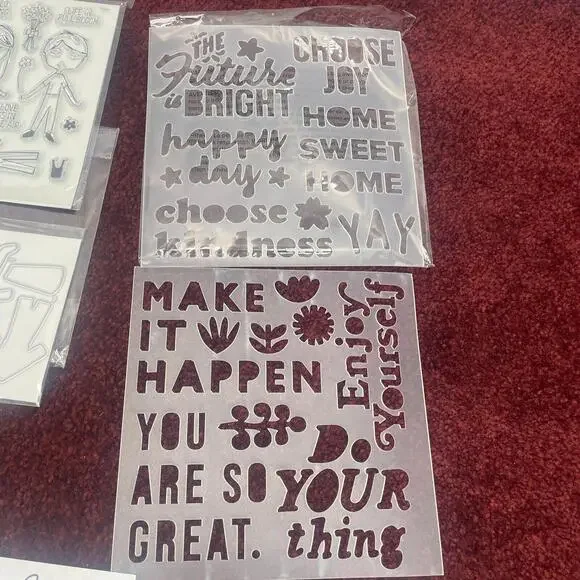 THE
Future
is BRIGHT
happy
day
choose
kindness
CHOOSE
JOY
HOME
SWEET
HOME
YAY
MAKE
IT
HAPPEN
Enjoy
Yourself
YOU
ARE SO
GREAT.
Do
YOUR
thing